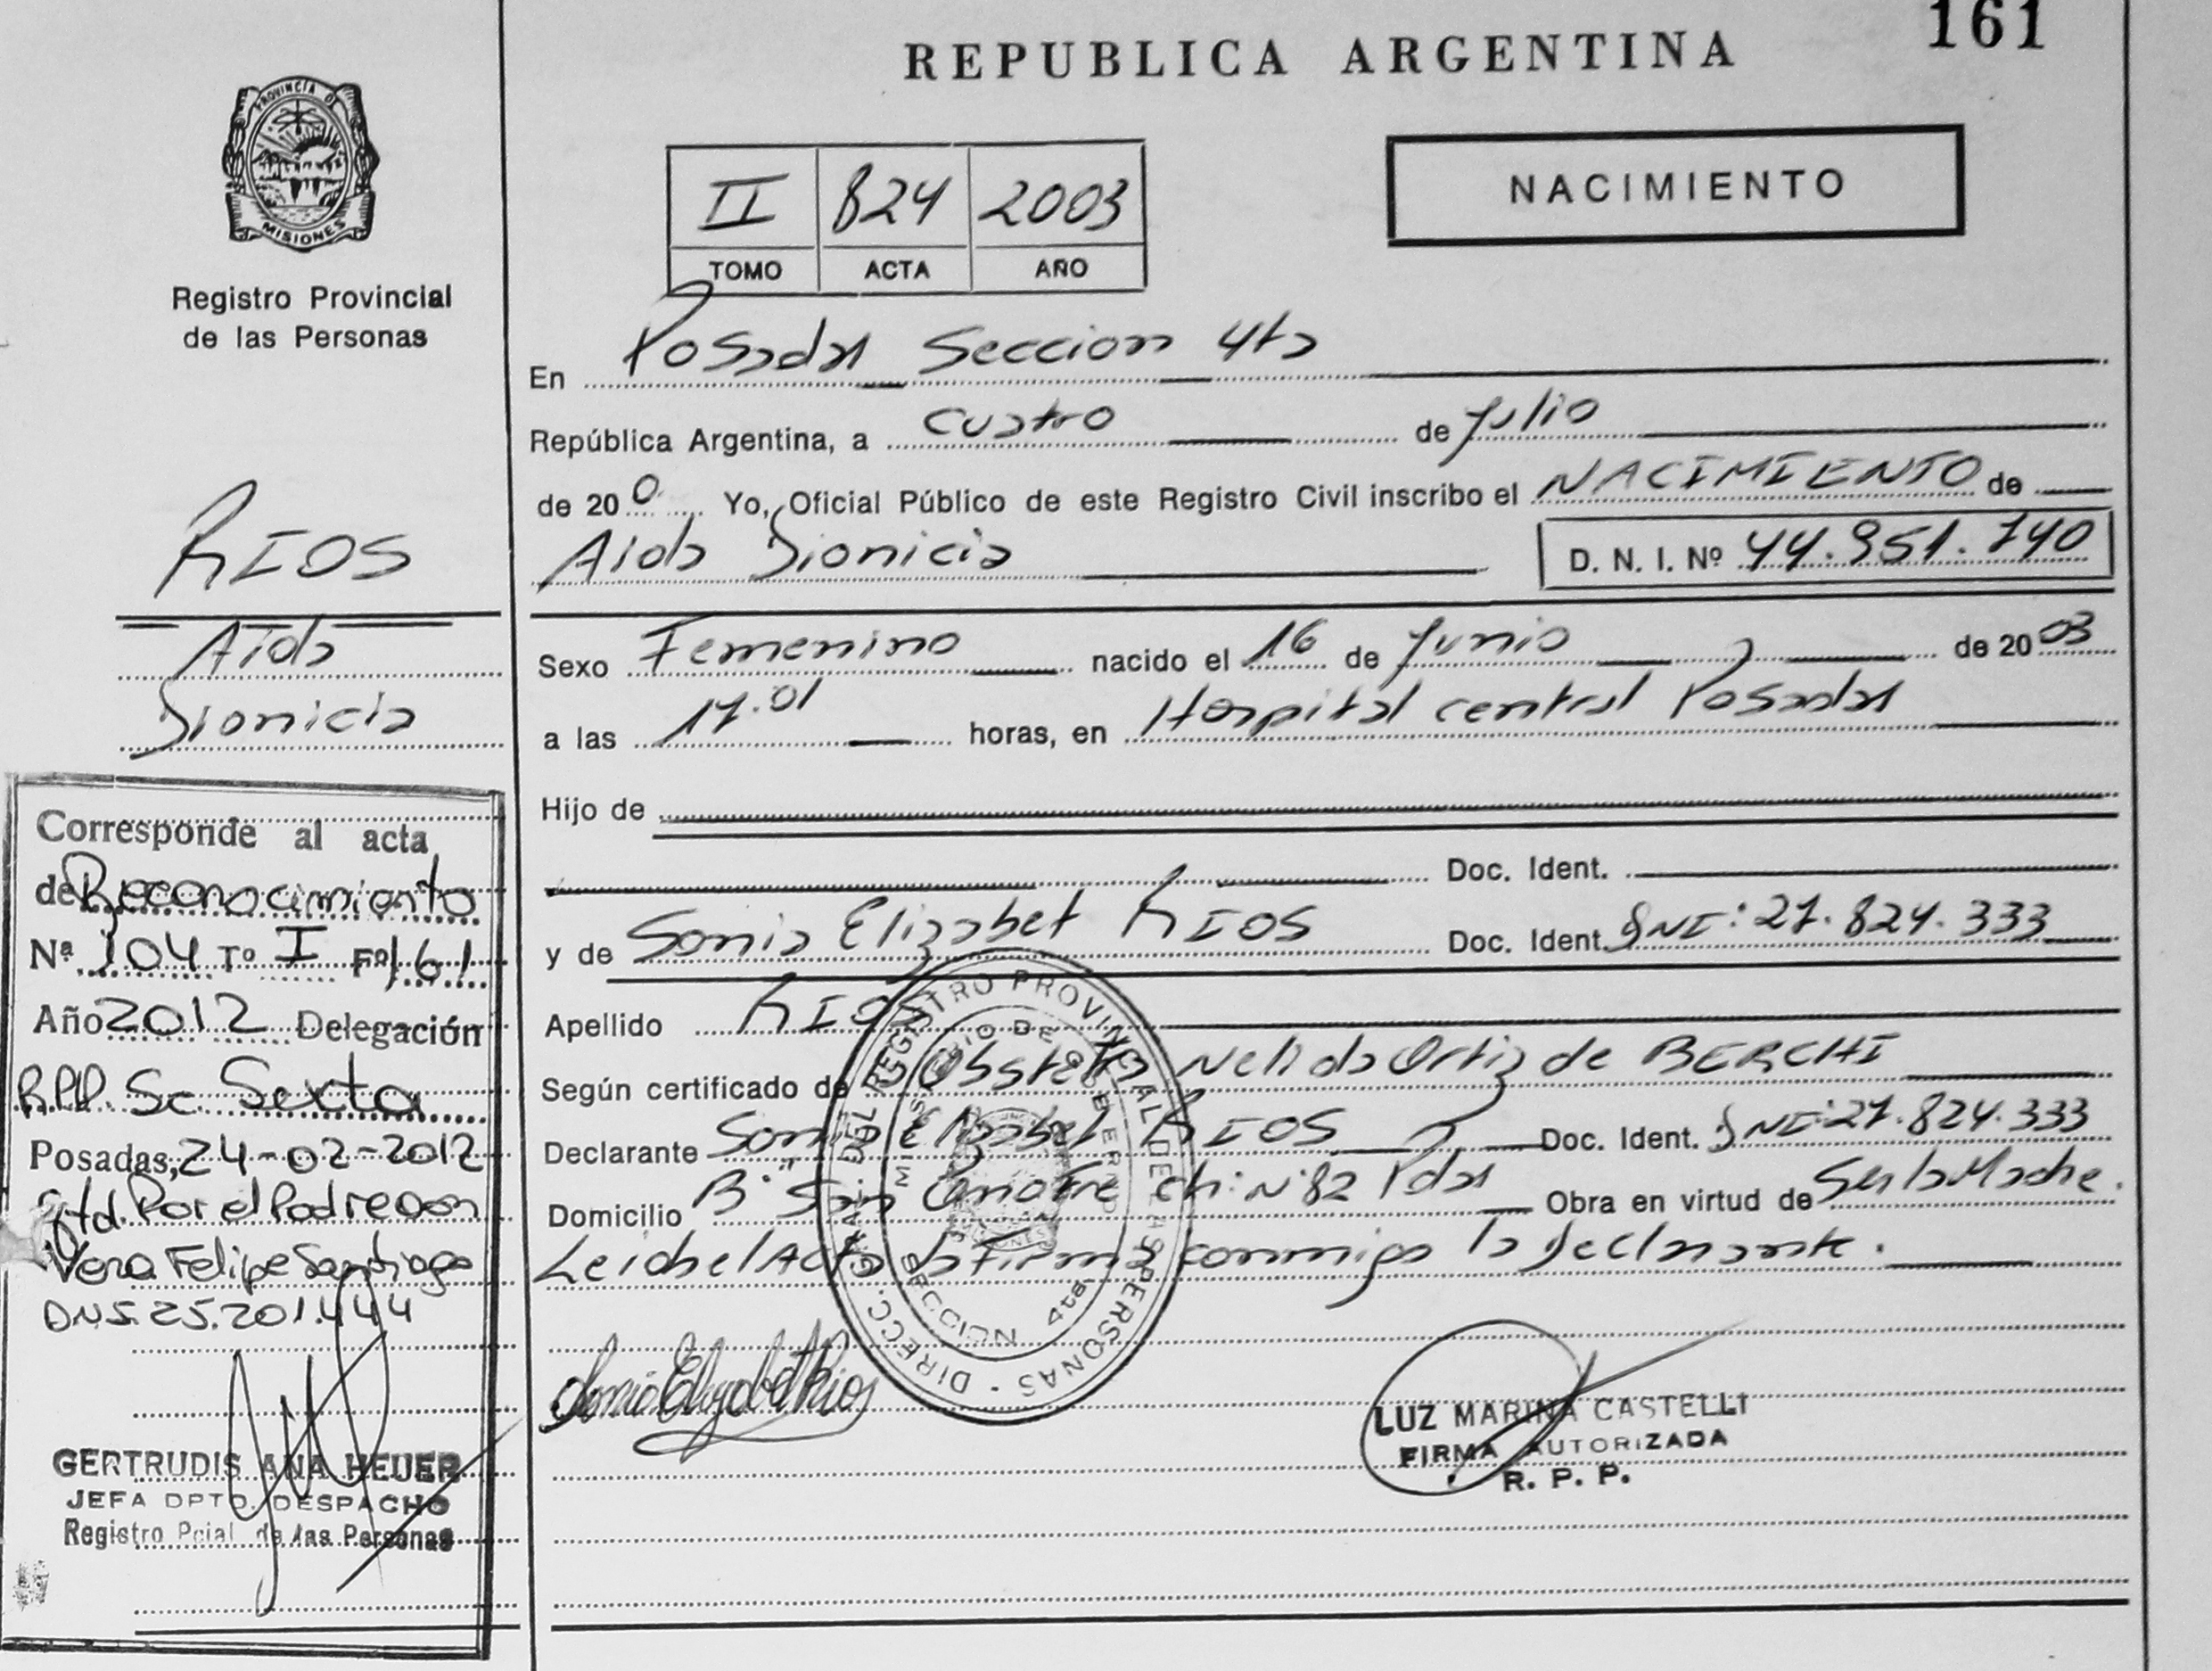 161
REPUBLICA ARGENTINA
PROVINCIA D
MISIONES
Registro Provincial
de las Personas
NACIMIENTO
II 824 2003
TOMO ACTA AÑO
En Posadas Seccion 4ta
República Argentina, a cuatro de Julio
de 200 Yo, Oficial Público de este Registro Civil inscribo el NACIMIENTO de
Aida Dionicia D. N. I. Nº 44.951.740
RIOS
Aida
Dionicia
Sexo Femenino nacido el 16 de Junio de 2003
a las 17.01 horas, en Hospital central Posadas
Hijo de
Doc. Ident.
y de Sonia Elizabet RIOS Doc. Ident. DNI: 27.824.333
Apellido RIOS
Según certificado de Obstetra Nelida Ortiz de BERCHI
Declarante Sonia Elizabet RIOS Doc. Ident. DNI: 27.824.333
Domicilio B° San Onofre ch: N°82 Pdas Obra en virtud de Ser la Madre.
Leida el Acta la Firma conmigo la Declarante.
Corresponde al acta
de Reconocimiento
Nª 104 Tº I Fº 161
Año 2012 Delegación
R.P.P. Sc Sexta
Posadas, 24-02-2012
Por el Padre Don
Vera Felipe Santiago
DNI. 25.201.444
GERTRUDIS ANA HEUER
JEFA DPTO. DESPACHO
Registro Pcial de las Personas
DIRECC. GRAL. DEL REGISTRO PROVINCIAL DE LAS PERSONAS
SECCION 4ta
Sonia Elizabet Rios
LUZ MARINA CASTELLI
FIRMA AUTORIZADA
R. P. P.